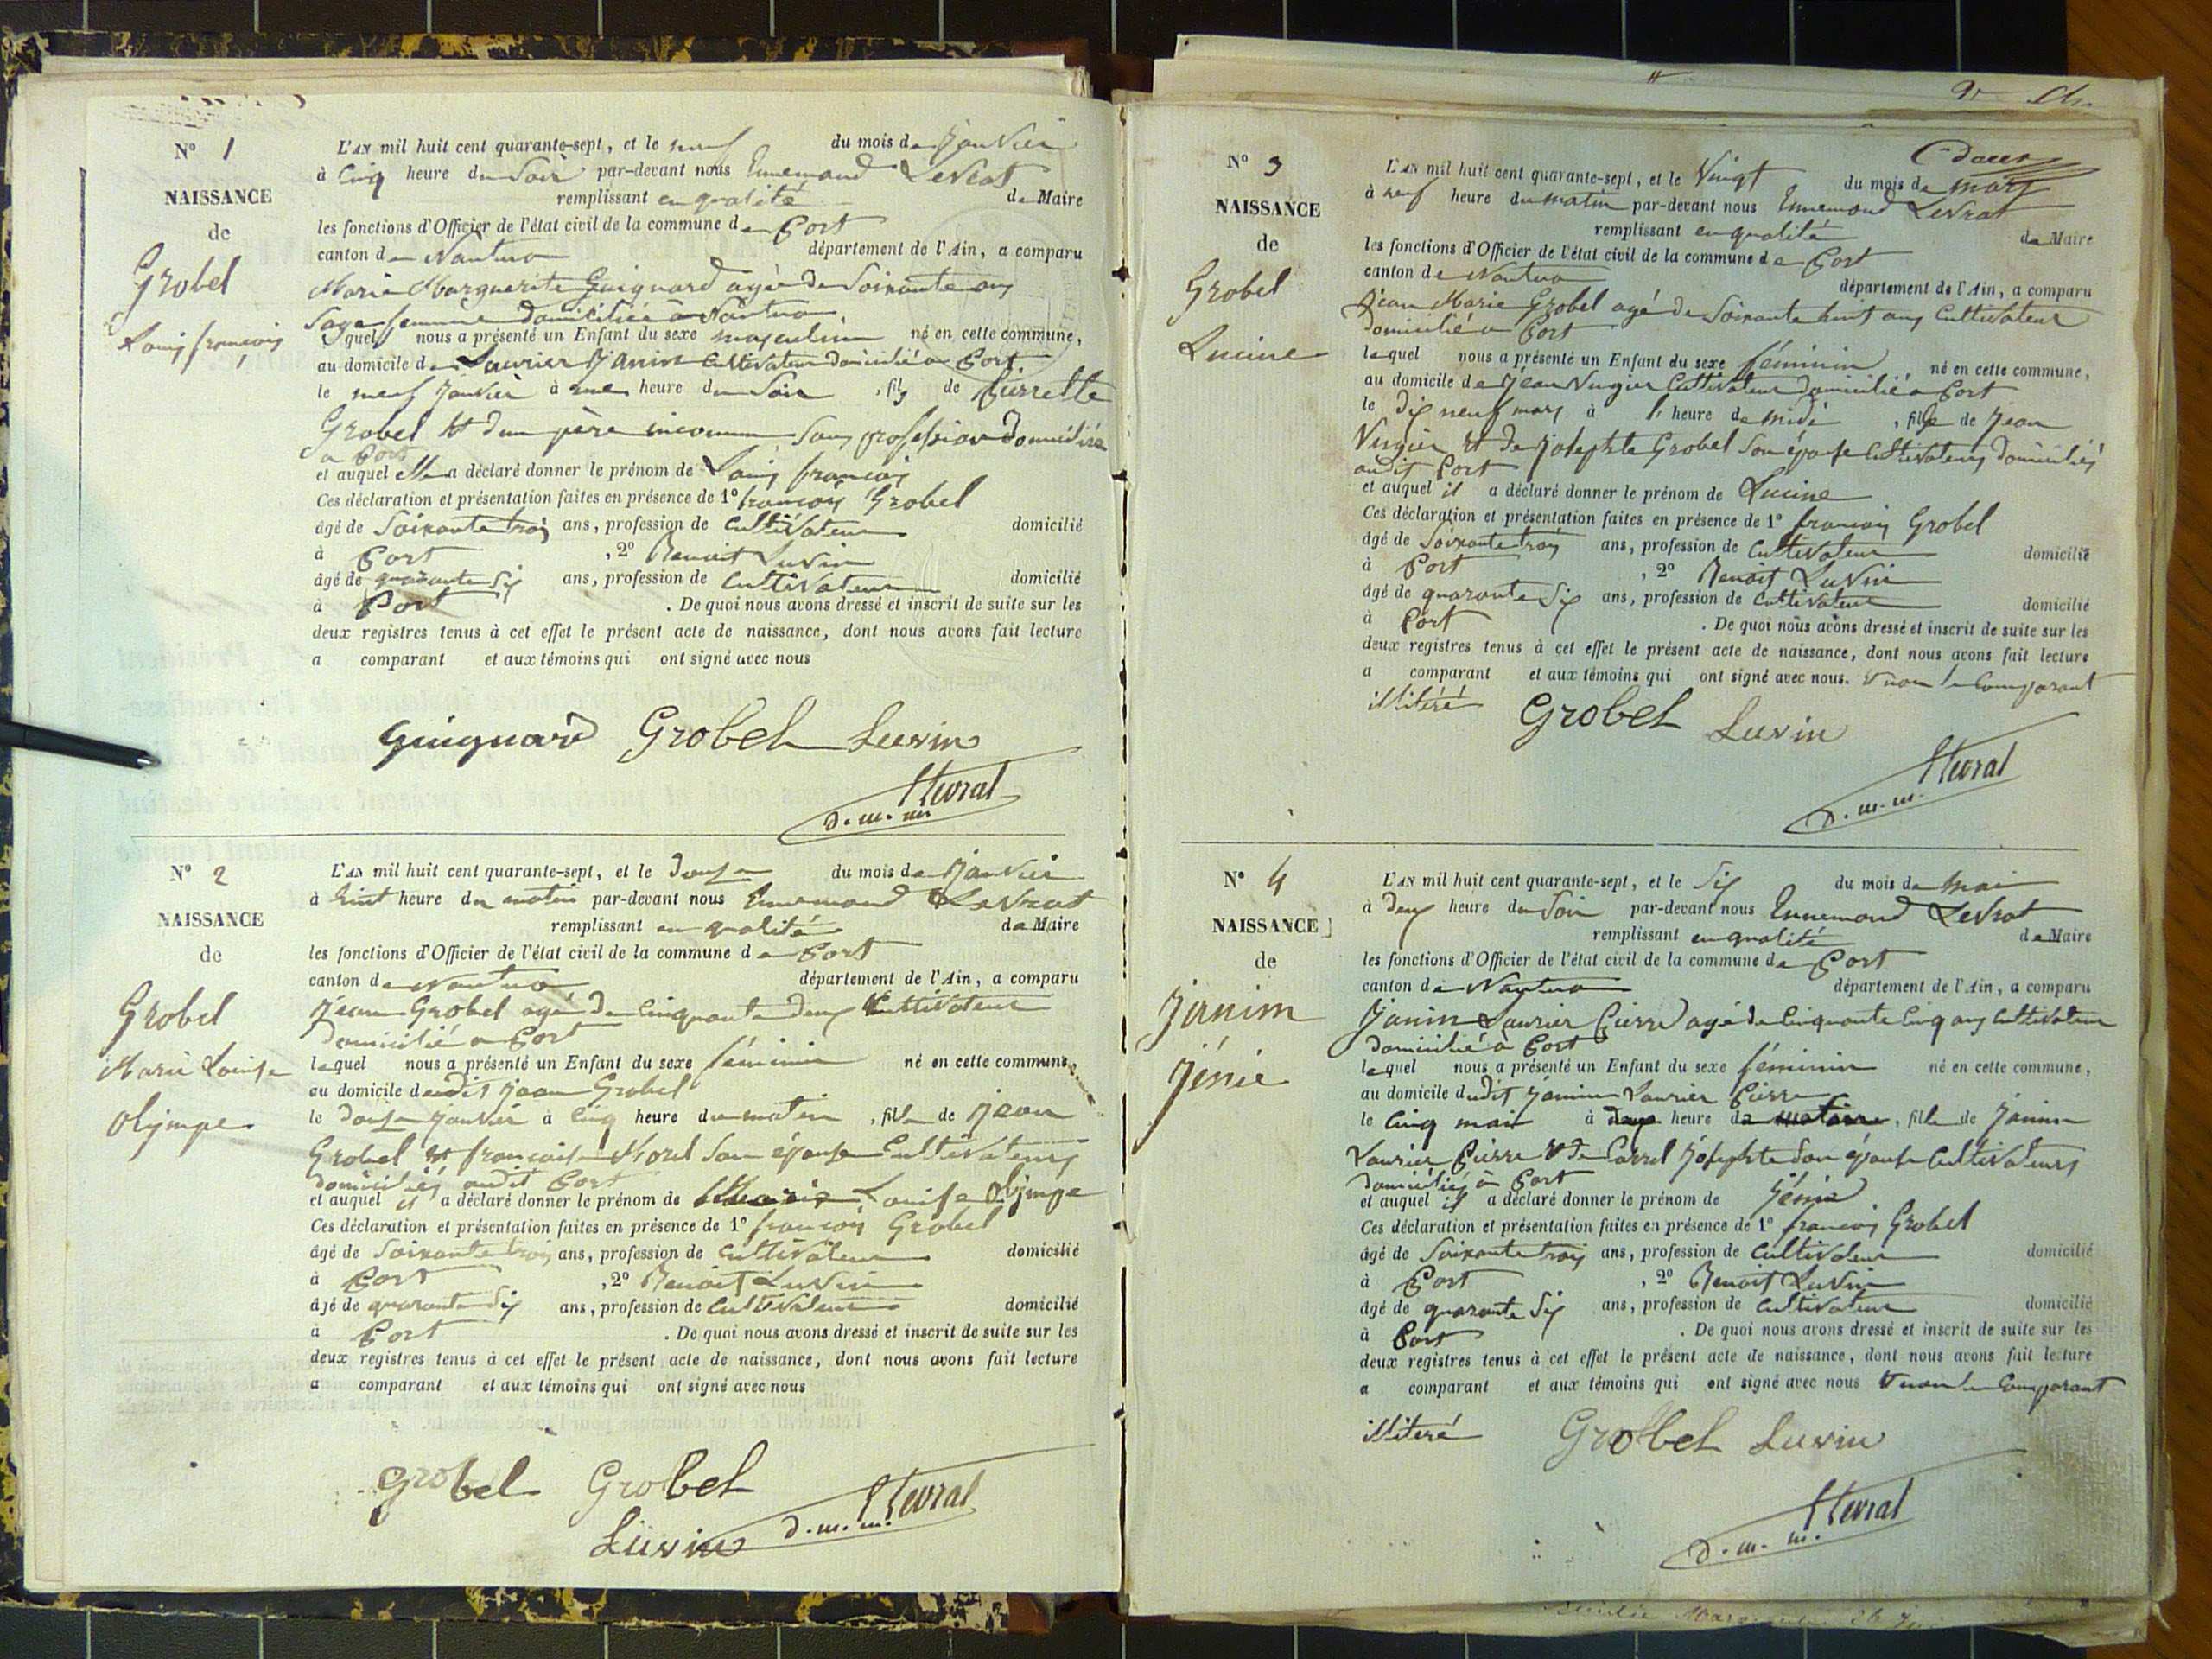 N° 1
NAISSANCE
de
Grobel
Louis françois
L'AN mil huit cent quarante-sept, et le neuf du mois de Janvier
à Cinq heure du Soir par-devant nous Ennemond Levrat
remplissant en qualité de Maire
les fonctions d'Officier de l'état civil de la commune de Port
canton de Nantua département de l'Ain, a comparu
Marie Marguerite Guignard agée de Soixante ans
Sage femme domiciliée à Nantua
quel nous a présenté un Enfant du sexe masculin né en cette commune,
au domicile de Laurier Janin Cultivateur domicilié a Port
le neuf Janvier à une heure du Soir , fils de Pierrette
Grobel et d'un père inconnu Sans profession domiciliée
a Port
et auquel Elle a déclaré donner le prénom de Louis françois
Ces déclaration et présentation faites en présence de 1° françois Grobel
âgé de Soixante trois ans, profession de Cultivateur domicilié
à Port , 2° Benoit Luvin
âgé de quarante Six ans, profession de Cultivateur domicilié
à Port . De quoi nous avons dressé et inscrit de suite sur les
deux registres tenus à cet effet le présent acte de naissance, dont nous avons fait lecture
a comparant et aux témoins qui ont signé avec nous
Guignard Grobel Luvin
Levrat
d. m. m.
N° 2
NAISSANCE
de
Grobel
Marie Louise
Olympe
L'AN mil huit cent quarante-sept, et le douze du mois de Janvier
à huit heure du matin par-devant nous Ennemond Levrat
remplissant en qualité de Maire
les fonctions d'Officier de l'état civil de la commune de Port
canton de Nantua département de l'Ain, a comparu
Jean Grobel agé de Cinquante deux Cultivateur
domicilié a Port
lequel nous a présenté un Enfant du sexe féminin né en cette commune,
au domicile dudit Jean Grobel
le douze Janvier à Cinq heure du matin , fille de Jean
Grobel et françoise Morel Son épouse Cultivateurs
domiciliés audit Port
et auquel il a déclaré donner le prénom de Marie Louise Olympe
Ces déclaration et présentation faites en présence de 1° françois Grobel
âgé de Soixante trois ans, profession de Cultivateur domicilié
à Port , 2° Benoit Luvin
âgé de quarante Six ans, profession de Cultivateur domicilié
à Port . De quoi nous avons dressé et inscrit de suite sur les
deux registres tenus à cet effet le présent acte de naissance, dont nous avons fait lecture
a comparant et aux témoins qui ont signé avec nous
Grobel Grobel
Luvin d. m. m. Levrat
N° 3
NAISSANCE
de
Grobel
Lucine
L'AN mil huit cent quarante-sept, et le Vingt du mois de mars
à neuf heure du matin par-devant nous Ennemond Levrat
remplissant en qualité de Maire
les fonctions d'Officier de l'état civil de la commune de Port
canton de Nantua département de l'Ain, a comparu
Jean Marie Grobel agé de Soixante huit ans Cultivateur
domicilié a Port
lequel nous a présenté un Enfant du sexe féminin né en cette commune,
au domicile de Jean Cultivateur domicilié a Port
le dix neuf mars à 1 heure de midi , fille de Jean
et de Josephte Grobel Son épouse Cultivateurs domiciliés
audit Port
et auquel il a déclaré donner le prénom de Lucine
Ces déclaration et présentation faites en présence de 1° françois Grobel
âgé de Soixante trois ans, profession de Cultivateur domicilié
à Port , 2° Benoit Luvin
âgé de quarante Six ans, profession de Cultivateur domicilié
à Port . De quoi nous avons dressé et inscrit de suite sur les
deux registres tenus à cet effet le présent acte de naissance, dont nous avons fait lecture
a comparant et aux témoins qui ont signé avec nous. et non le Comparant
illitéré
Grobel Luvin
Levrat
d. m. m.
N° 4
NAISSANCE
de
Janin
Jénie
L'AN mil huit cent quarante-sept, et le Six du mois de mai
à deux heure du Soir par-devant nous Ennemond Levrat
remplissant en qualité de Maire
les fonctions d'Officier de l'état civil de la commune de Port
canton de Nantua département de l'Ain, a comparu
Janin Laurier Pierre agé de Cinquante Cinq ans Cultivateur
domicilié à Port
lequel nous a présenté un Enfant du sexe féminin né en cette commune,
au domicile dudit Janin Laurier Pierre
le Cinq mai à heure de , fille de Janin
Laurier Pierre et de Josephte Son épouse Cultivateurs
domiciliés à Port
et auquel il a déclaré donner le prénom de Jénie
Ces déclaration et présentation faites en présence de 1° françois Grobel
âgé de Soixante trois ans, profession de Cultivateur domicilié
à Port , 2° Benoit Luvin
âgé de quarante Six ans, profession de Cultivateur domicilié
à Port . De quoi nous avons dressé et inscrit de suite sur les
deux registres tenus à cet effet le présent acte de naissance, dont nous avons fait lecture
a comparant et aux témoins qui ont signé avec nous et non le Comparant
illitéré
Grobel Luvin
Levrat
d. m. m.